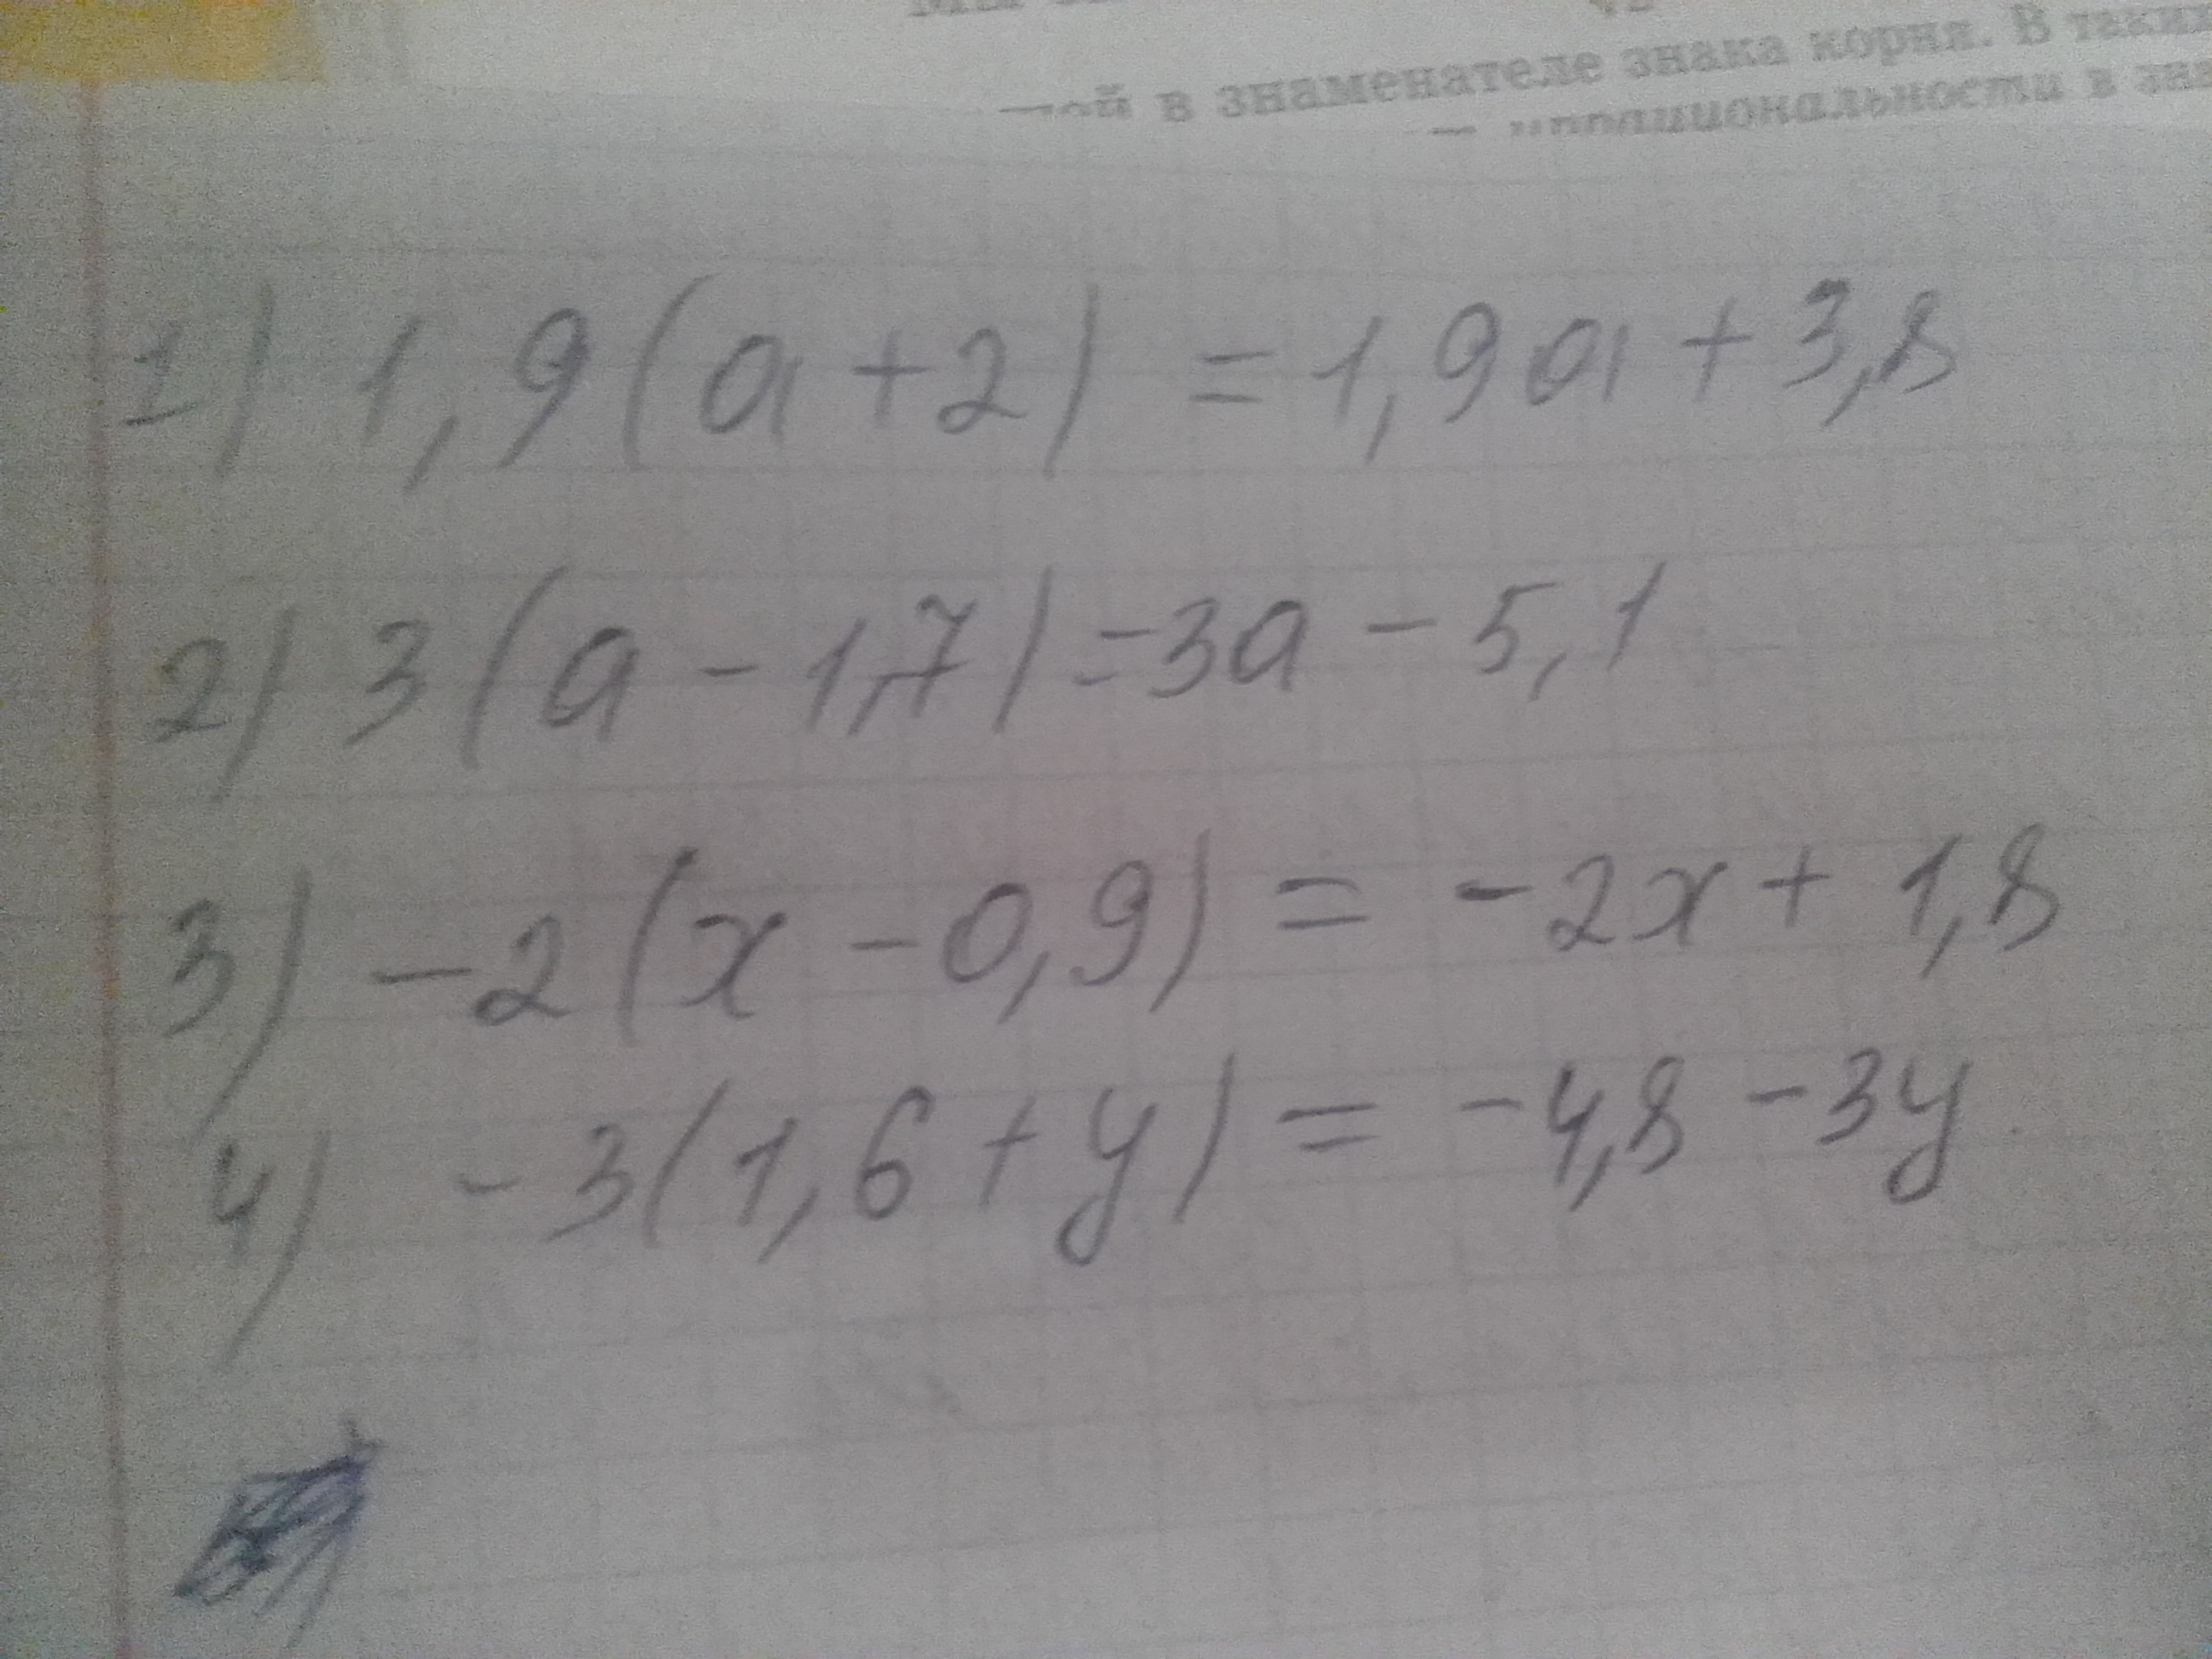 в знаменателе знака корня. В таких
иррациональности в зна
1) 1,9(a+2) = 1,9a + 3,8
2) 3(a - 1,7) = 3a - 5,1
3) -2(x - 0,9) = -2x + 1,8
4) -3(1,6 + y) = -4,8 - 3y